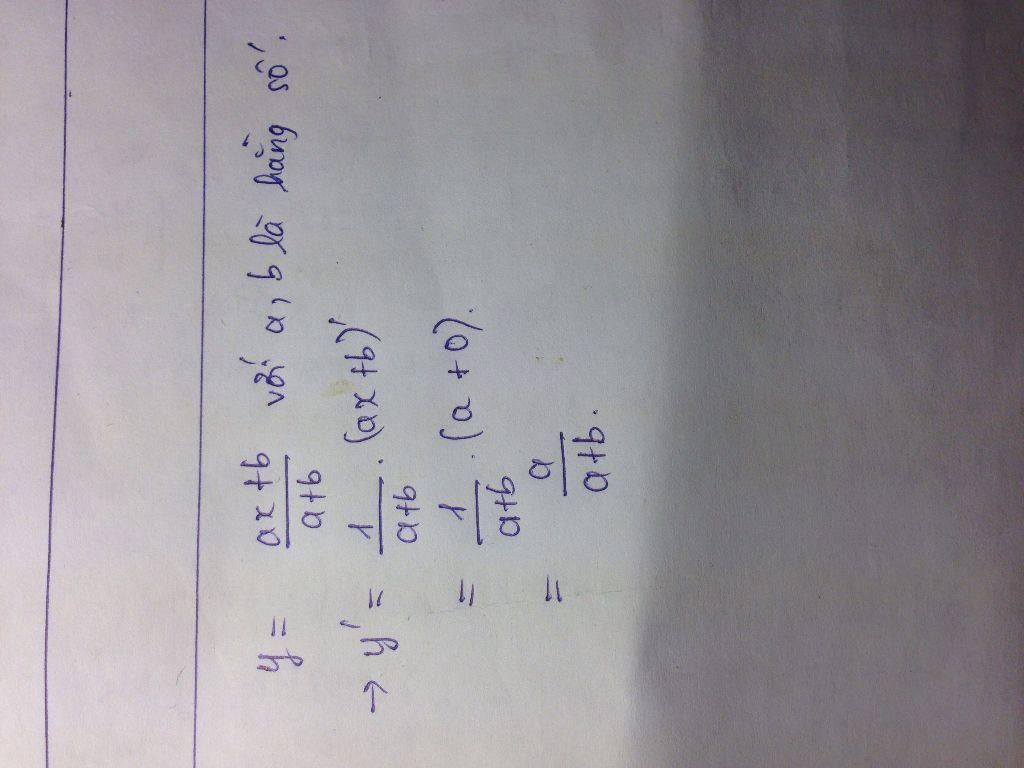 y = \frac{ax+b}{a+b} với a, b là hằng số.
→ y' = \frac{1}{a+b} . (ax+b)'
= \frac{1}{a+b} . (a+0).
= \frac{a}{a+b}.